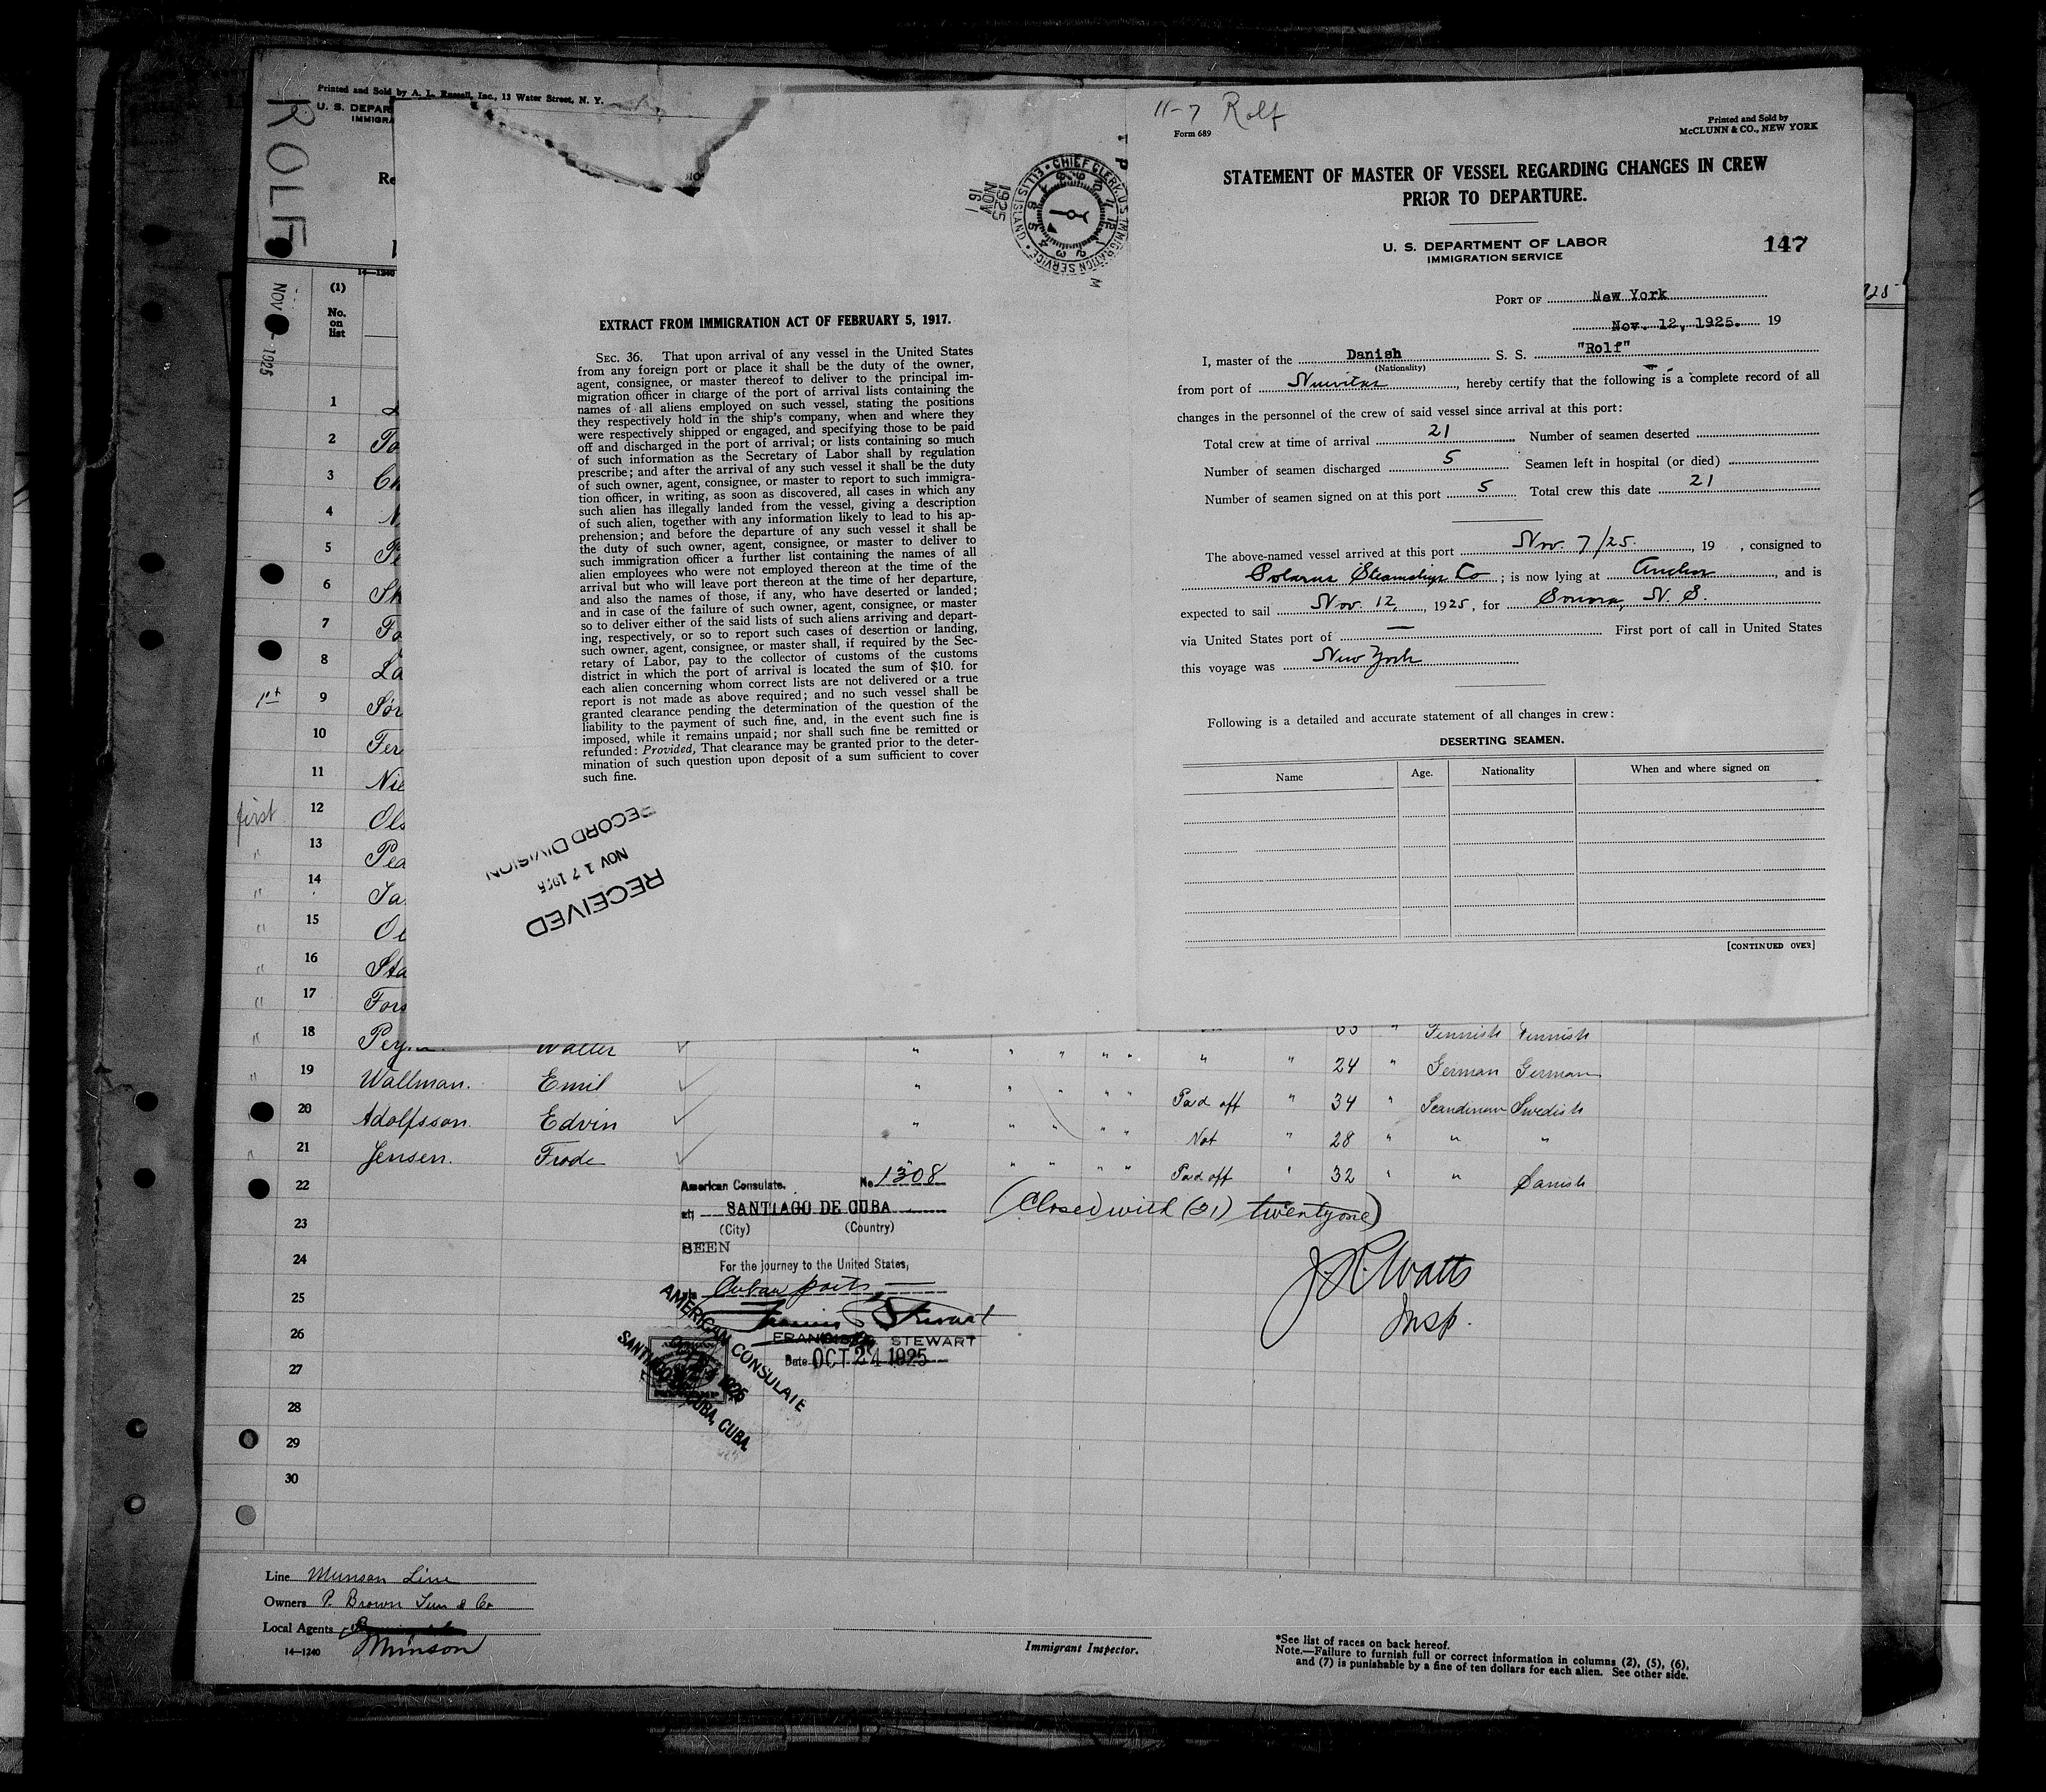 Printed and Sold by A. L. Russell, Inc., 13 Water Street, N. Y.
U. S. DEPAR
IMMIGRA
ROLF
Re
14—1240
NOV
1925
(1)
No.
on
list
1
2 To
3 Ch
4
5 Pe
6 Sh
7 Fo
8 La
1st 9 Sör
10 Fer
11 Nie
first 12 Ols
" 13 Ped
" 14 Ja
" 15 Ol
" 16 Sta
" 17 Fors
" 18 Per Walter " " " " " " " 24 " German German
" 19 Wallman. Emil " " " " " Paid off " 34 " Scandinav Swedish
20 Adolfsson. Edvin " " " " " Not " 28 " " "
" 21 Jensen. Frode " " " " " Paid off " 32 " " Danish
33 " Finnish Finnish
22
23
24
25
26
27
28
29
30
American Consulate. No. 1308
at SANTIAGO DE CUBA
(City) (Country)
SEEN
For the journey to the United States,
Cuban ports
Francis R Stewart
FRANCIS R. STEWART
Date OCT 24 1925
AMERICAN CONSULATE
SANTIAGO DE CUBA, CUBA.
(Closed with (21) twentyone)
J. R. Watts
Insp.
Line Munson Line
Owners P. Brown Jun & Co
Local Agents
Munson
14—1240
Immigrant Inspector.
*See list of races on back hereof.
Note.—Failure to furnish full or correct information in columns (2), (5), (6),
and (7) is punishable by a fine of ten dollars for each alien. See other side.
CHIEF CLERK, U.S. IMMIGRATION SERVICE • ELLIS ISLAND •
1925
NOV
16
EXTRACT FROM IMMIGRATION ACT OF FEBRUARY 5, 1917.
SEC. 36. That upon arrival of any vessel in the United States
from any foreign port or place it shall be the duty of the owner,
agent, consignee, or master thereof to deliver to the principal im-
migration officer in charge of the port of arrival lists containing the
names of all aliens employed on such vessel, stating the positions
they respectively hold in the ship's company, when and where they
were respectively shipped or engaged, and specifying those to be paid
off and discharged in the port of arrival; or lists containing so much
of such information as the Secretary of Labor shall by regulation
prescribe; and after the arrival of any such vessel it shall be the duty
of such owner, agent, consignee, or master to report to such immigra-
tion officer, in writing, as soon as discovered, all cases in which any
such alien has illegally landed from the vessel, giving a description
of such alien, together with any information likely to lead to his ap-
prehension; and before the departure of any such vessel it shall be
the duty of such owner, agent, consignee, or master to deliver to
such immigration officer a further list containing the names of all
alien employees who were not employed thereon at the time of the
arrival but who will leave port thereon at the time of her departure,
and also the names of those, if any, who have deserted or landed;
and in case of the failure of such owner, agent, consignee, or master
so to deliver either of the said lists of such aliens arriving and depart-
ing, respectively, or so to report such cases of desertion or landing,
such owner, agent, consignee, or master shall, if required by the Sec-
retary of Labor, pay to the collector of customs of the customs
district in which the port of arrival is located the sum of $10. for
each alien concerning whom correct lists are not delivered or a true
report is not made as above required; and no such vessel shall be
granted clearance pending the determination of the question of the
liability to the payment of such fine, and, in the event such fine is
imposed, while it remains unpaid; nor shall such fine be remitted or
refunded: Provided, That clearance may be granted prior to the deter-
mination of such question upon deposit of a sum sufficient to cover
such fine.
RECEIVED
NOV 17 1925
RECORD DIVISION
11-7 Rolf
Form 689
Printed and Sold by
McCLUNN & CO., NEW YORK
STATEMENT OF MASTER OF VESSEL REGARDING CHANGES IN CREW
PRIOR TO DEPARTURE.
U. S. DEPARTMENT OF LABOR
IMMIGRATION SERVICE
147
PORT OF New York
Nov. 12, 1925. 19
I, master of the Danish S. S. "Rolf"
(Nationality)
from port of Nuevitas, hereby certify that the following is a complete record of all
changes in the personnel of the crew of said vessel since arrival at this port:
Total crew at time of arrival 21 Number of seamen deserted
Number of seamen discharged 5 Seamen left in hospital (or died)
Number of seamen signed on at this port 5 Total crew this date 21
The above-named vessel arrived at this port Nov. 7/25, 19 , consigned to
Polarus Steamship Co; is now lying at Anchor, and is
expected to sail Nov. 12, 1925, for Sonora, N. S.
via United States port of — First port of call in United States
this voyage was New York
Following is a detailed and accurate statement of all changes in crew:
DESERTING SEAMEN.
Name Age. Nationality When and where signed on
[CONTINUED OVER]